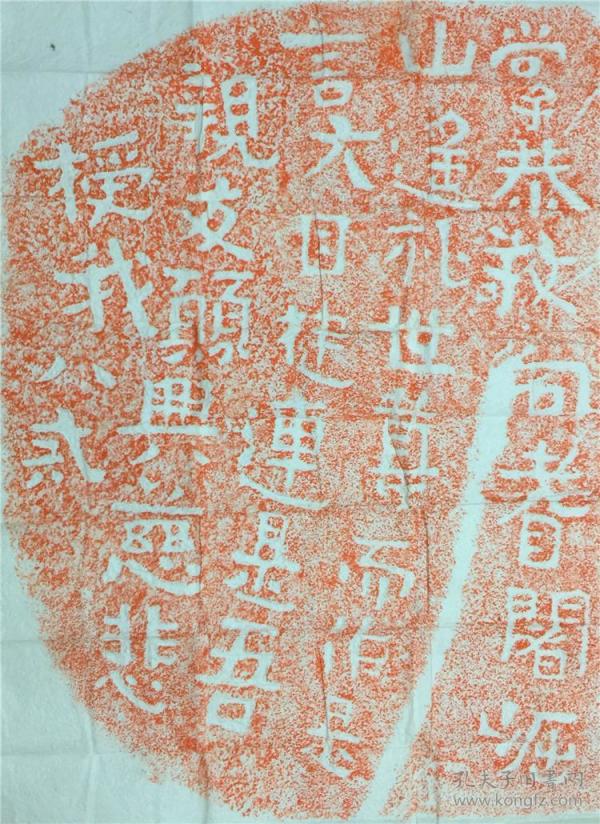 掌恭敬向耆闍崛
山遙礼世尊而作是
言大目揵連是吾
親友願興慈悲
授我八戒
孔夫子旧书网
www.kongfz.com